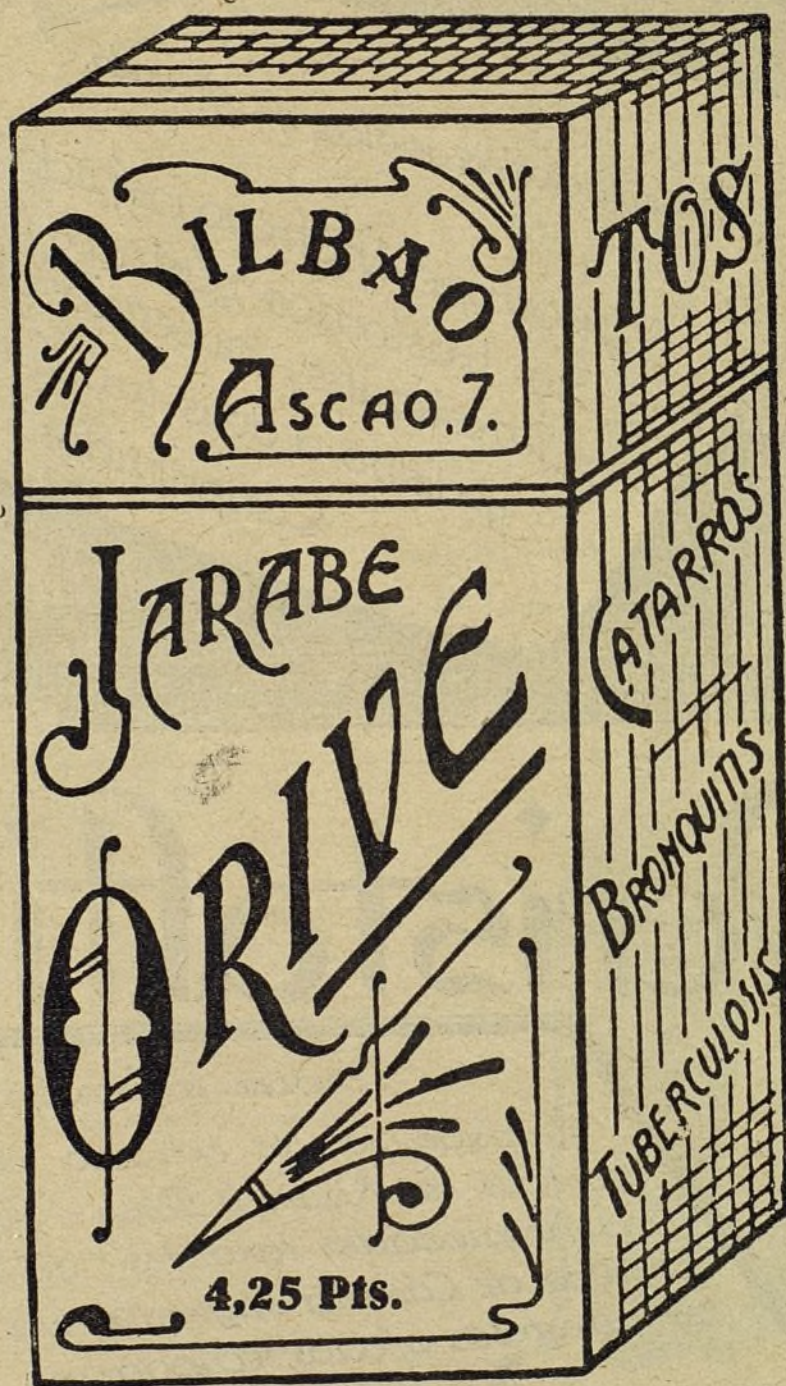 BILBAO
ASCAO, 7.
JARABE
ORIVE
4,25 Pts.
TOS
CATARROS
BRONQUITIS
TUBERCULOSIS